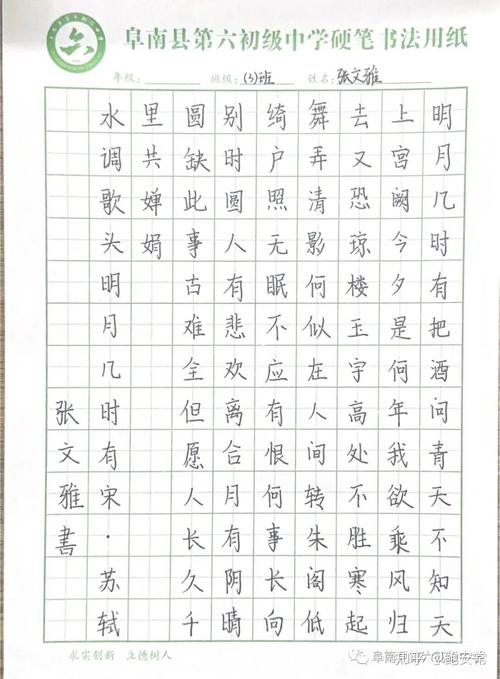 阜南县第六初级中学硬笔书法用纸
年级: 班级: (3)班 姓名: 张文雅
明月几时有把酒问青天不知天
上宫阙今夕是何年我欲乘风归
去又恐琼楼玉宇高处不胜寒起
舞弄清影何似在人间转朱阁低
绮户照无眠不应有恨何事长向
别时圆人有悲欢离合月有阴晴
圆缺此事古难全但愿人长久千
里共婵娟
水调歌头明月几时有宋·苏轼
张文雅書
求实创新 立德树人